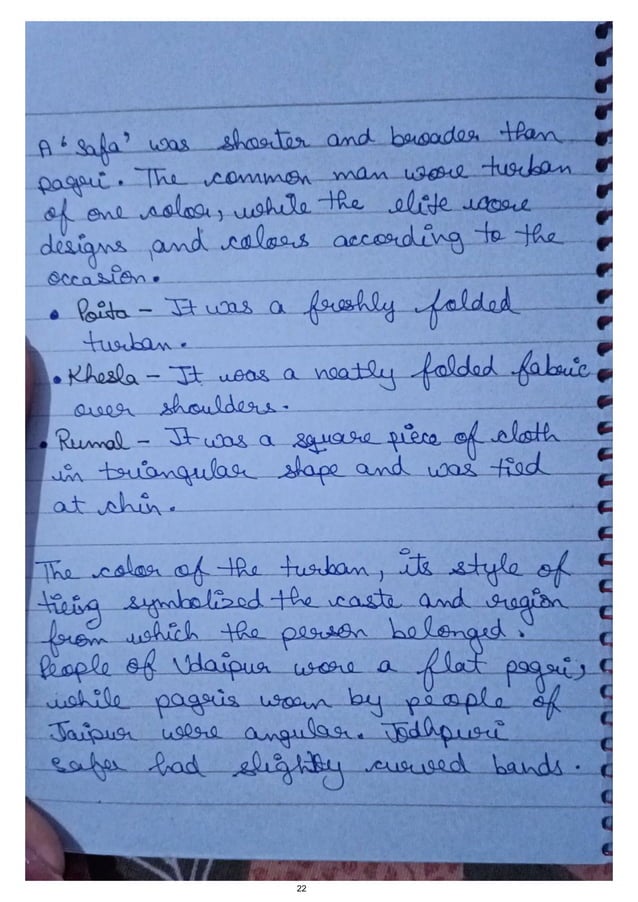 A 'Safa' was shorter and broader than
pagri. The common man wore turban
of one color, while the elite wore
designs and colours according to the
occasion.
• Poita - It was a freshly folded
turban.
• Khesla - It was a neatly folded fabric
over shoulders.
• Rumal - It was a square piece of cloth
in triangular shape and was tied
at chin.
The color of the turban, its style of
tieing symbolized the caste and region
from which the person belonged.
People of Udaipur wore a flat pagri,
while pagris worn by people of
Jaipur were angular. Jodhpuri
safas had slightly curved bands.
22